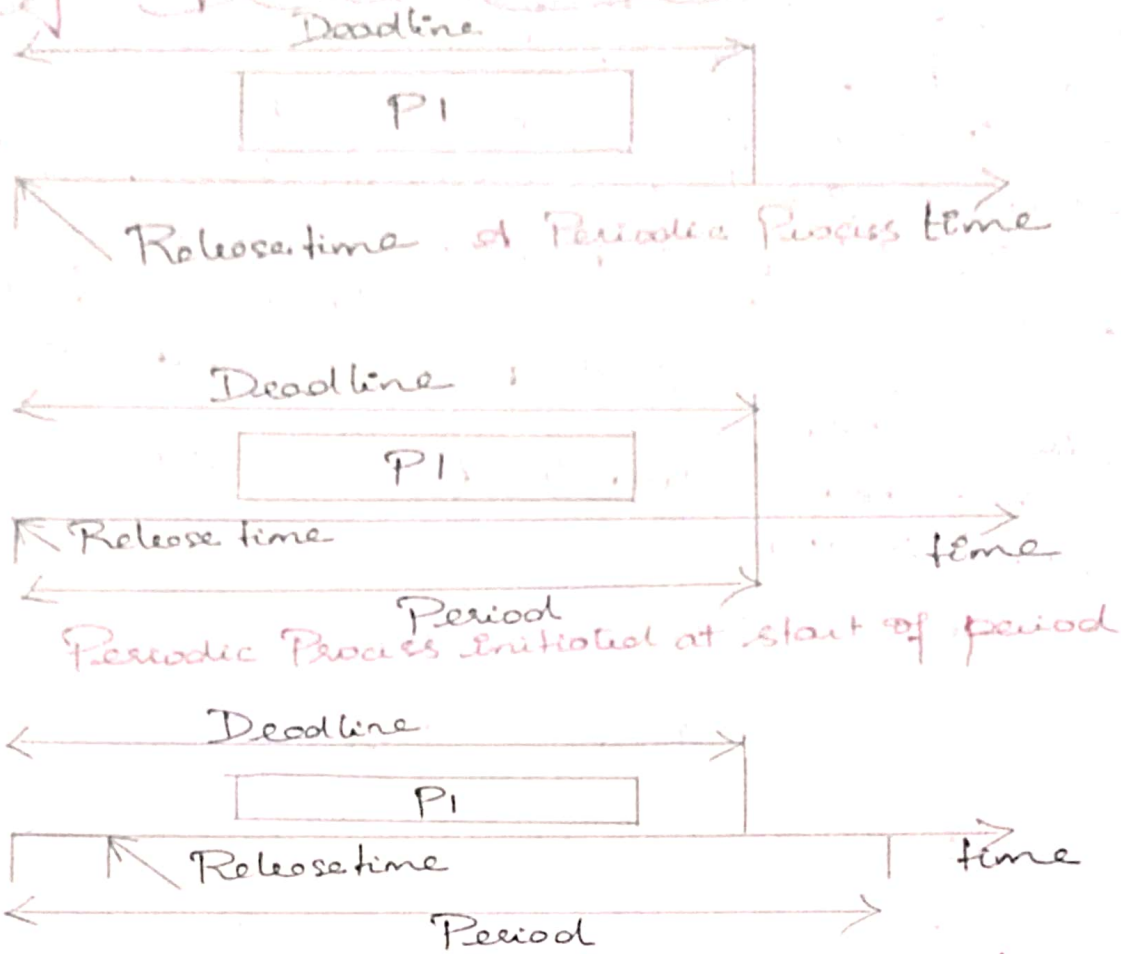 Deadline
P1
Release time A Periodic Process time
Deadline
P1
Release time
time
Period
Periodic Process initiated at start of period
Deadline
P1
Release time
time
Period